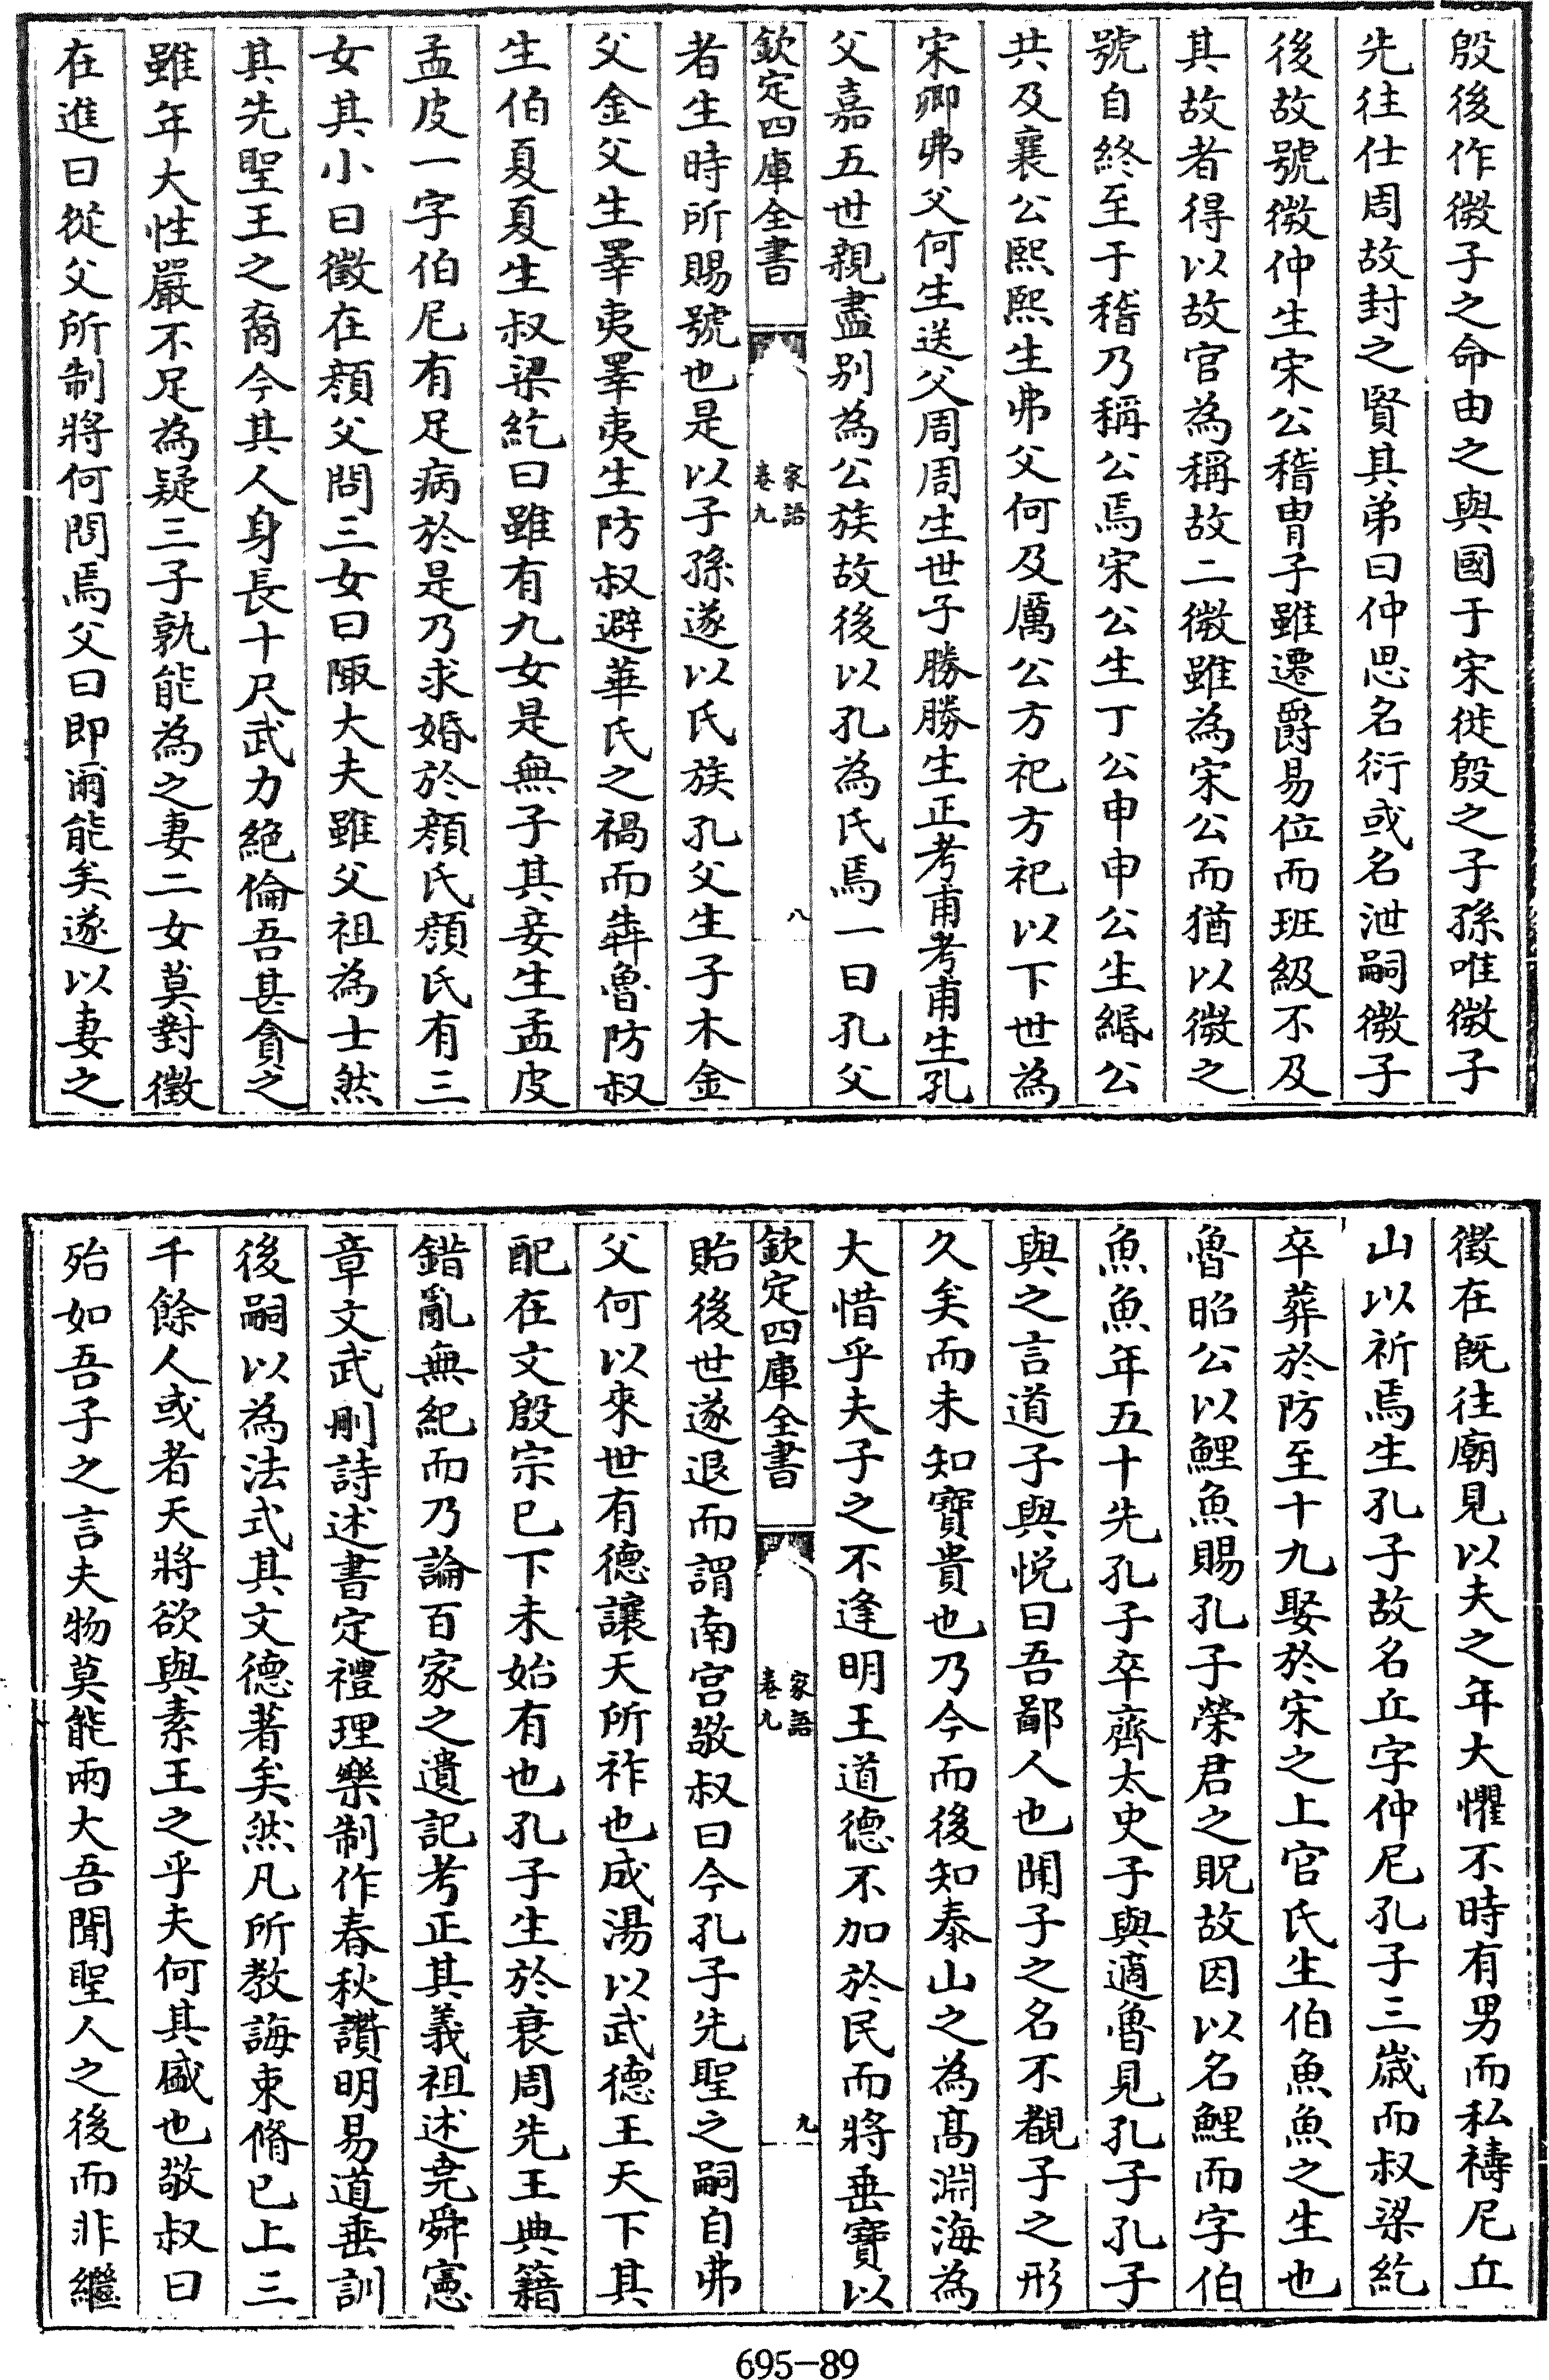 殷後作微子之命由之與國于宋徙殷之子孫唯微子
先往仕周故封之賢其弟曰仲思名衍或名泄嗣微子
後故號微仲生宋公稽胄子雖遷爵易位而班級不及
其故者得以故官為稱故二微雖為宋公而猶以微之
號自終至于稽乃稱公焉宋公生丁公申申公生緡公
共及襄公熙熙生弗父何及厲公方祀方祀以下世為
宋卿弗父何生送父周周生世子勝勝生正考甫考甫生孔
父嘉五世親盡别為公族故後以孔為氏焉一曰孔父
欽定四庫全書
家語
卷九
八
者生時所賜號也是以子孫遂以氏族孔父生子木金
父金父生睪夷睪夷生防叔避華氏之禍而犇魯防叔
生伯夏夏生叔梁紇曰雖有九女是無子其妾生孟皮
孟皮一字伯尼有足病於是乃求婚於顔氏顔氏有三
女其小曰徵在顔父問三女曰陬大夫雖父祖為士然
其先聖王之裔今其人身長十尺武力絶倫吾甚貪之
雖年大性嚴不足為疑三子孰能為之妻二女莫對徵
在進曰從父所制將何問焉父曰即爾能矣遂以妻之
徵在既往廟見以夫之年大懼不時有男而私禱尼丘
山以祈焉生孔子故名丘字仲尼孔子三歲而叔梁紇
卒葬於防至十九娶於宋之上官氏生伯魚魚之生也
魯昭公以鯉魚賜孔子榮君之貺故因以名鯉而字伯
魚魚年五十先孔子卒齊太史子與適魯見孔子孔子
與之言道子與悦曰吾鄙人也聞子之名不覩子之形
久矣而未知寶貴也乃今而後知泰山之為髙淵海為
大惜乎夫子之不逢明王道德不加於民而將垂寶以
欽定四庫全書
家語
卷九
九
貽後世遂退而謂南宫敬叔曰今孔子先聖之嗣自弗
父何以來世有德讓天所祚也成湯以武德王天下其
配在文殷宗已下未始有也孔子生於衰周先王典籍
錯亂無紀而乃論百家之遺記考正其義祖述堯舜憲
章文武刪詩述書定禮理樂制作春秋讚明易道垂訓
後嗣以為法式其文德著矣然凡所教誨束脩已上三
千餘人或者天將欲與素王之乎夫何其盛也敬叔曰
殆如吾子之言夫物莫能兩大吾聞聖人之後而非繼
695-89